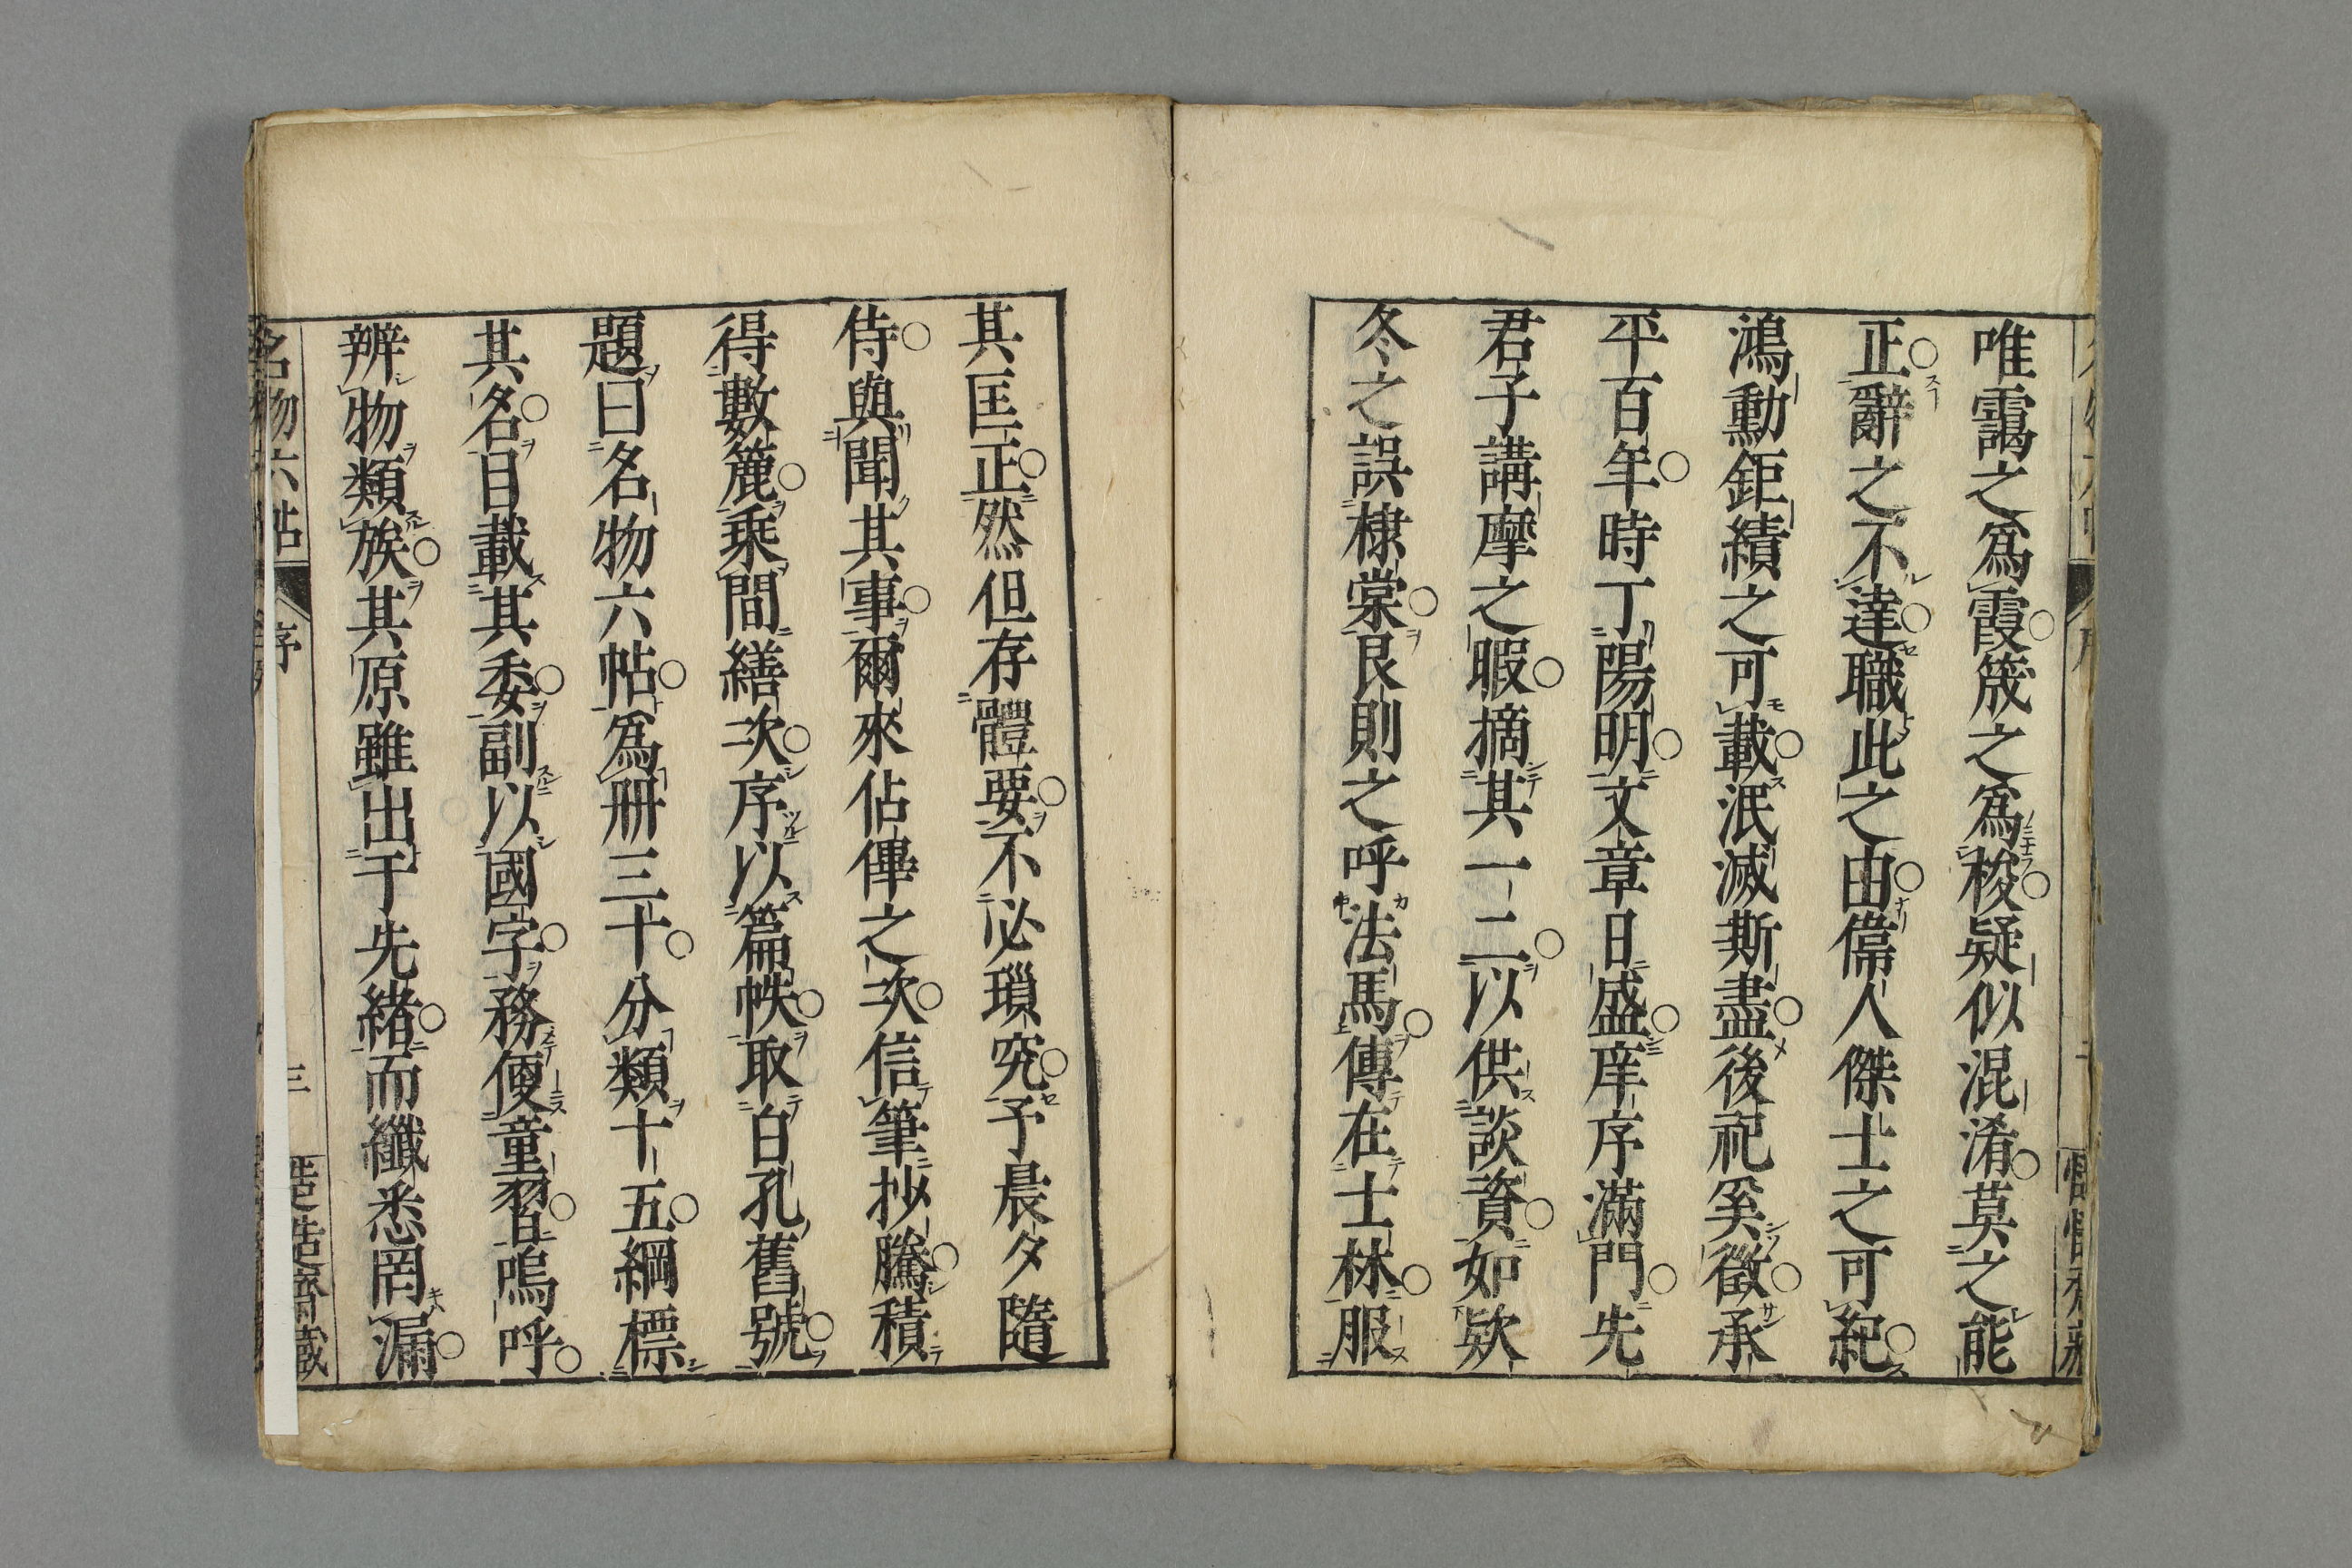 唯靄之爲霞筬之爲梭疑似混淆莫之能
正辭之不達職此之由偉人傑士之可紀
鴻勳鉅績之可載泯滅斯盡後祀奚徵承
平百年時丁陽明文章日盛庠序滿門先
君子講摩之暇摘其一二以供談資如欵
冬之誤棣棠艮則之呼法馬傳在士林服
其匡正然但存體要不必瑣究予晨夕隨
侍與聞其事爾來佔俾之次信筆抄騰積
得數簏乘間繕次序以篇帙取白孔舊號
題曰名物六帖爲冊三十分類十五綱標
其名目載其委副以國字務便童習嗚呼
辨物類族其原雖出于先緒而纖悉罔漏
名物六帖 序 三 藏